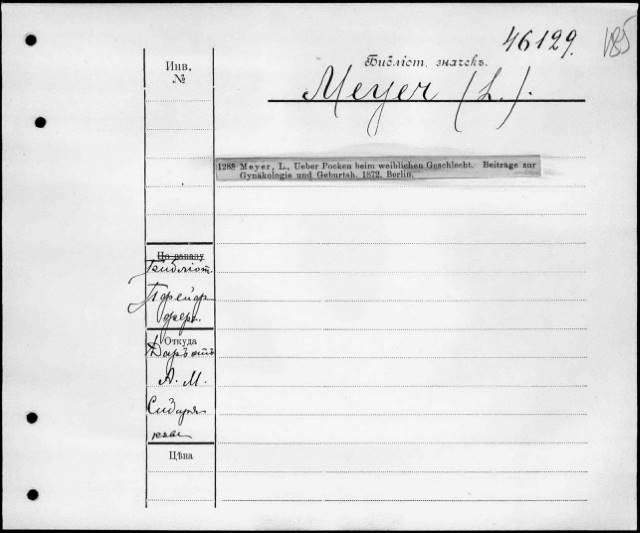 46129.
185
Библіот. значекъ.
Инв,
№
Meyer (L.).
1288 Meyer, L., Ueber Pocken beim weiblichen Geschlecht. Beiträge zur
Gynäkologie und Geburtsh. 1872. Berlin.
По заказу
Библіот.
Откуда
Даръ отъ
А. М.
Цѣна